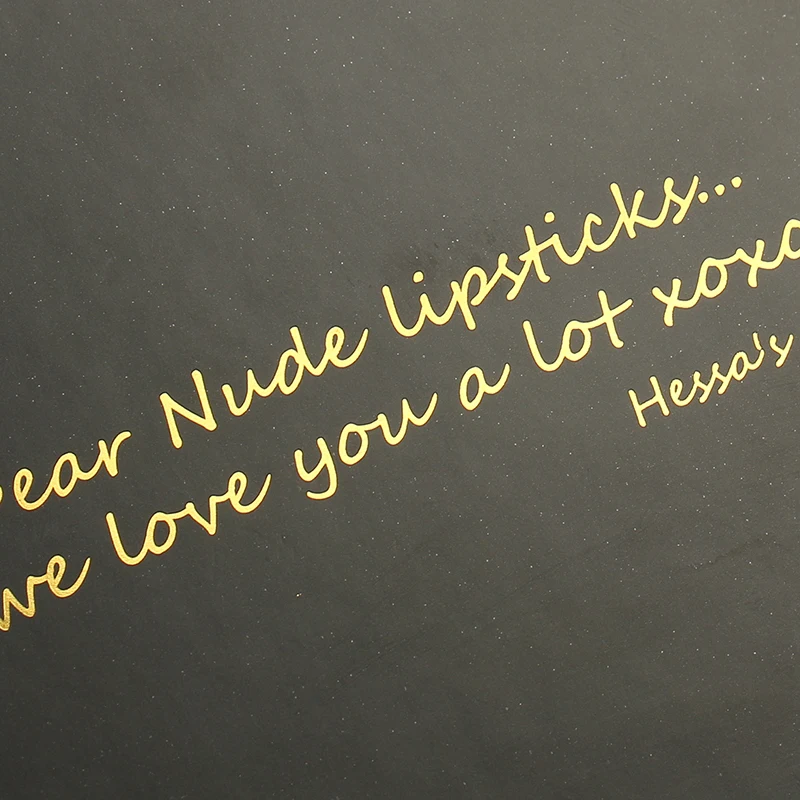 Dear Nude lipsticks...
we love you a lot xoxo
Hessa's